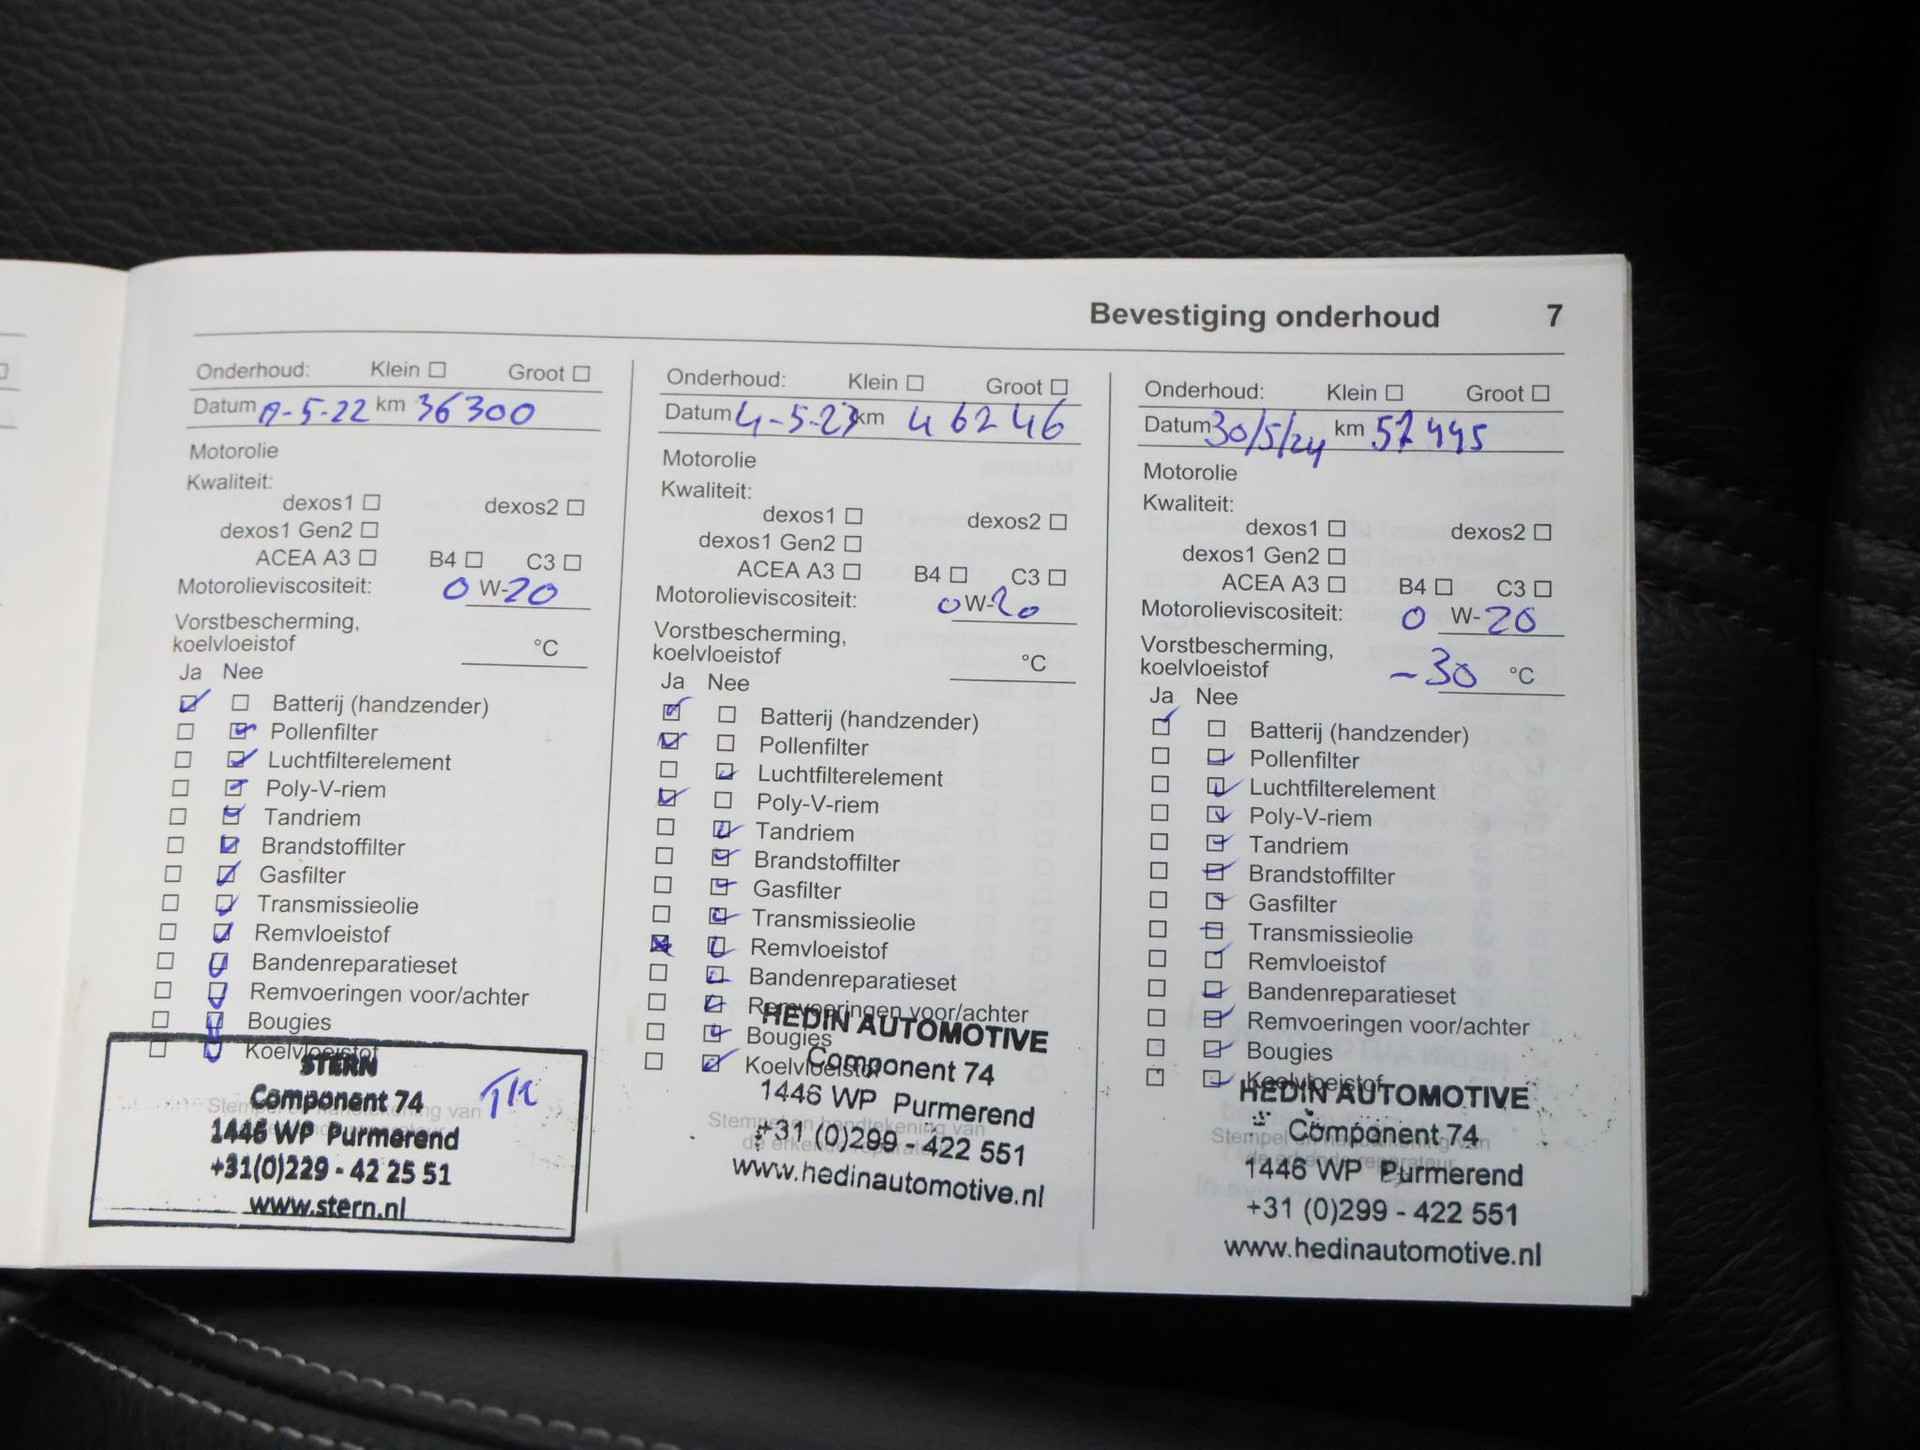 Bevestiging onderhoud 7
Onderhoud: Klein Groot
Datum -5-22 km 36300
Motorolie
Kwaliteit:
dexos1 dexos2
dexos1 Gen2
ACEA A3 B4 C3
Motorolieviscositeit: 0 W-20
Vorstbescherming,
koelvloeistof °C
Ja Nee
Batterij (handzender)
Pollenfilter
Luchtfilterelement
Poly-V-riem
Tandriem
Brandstoffilter
Gasfilter
Transmissieolie
Remvloeistof
Bandenreparatieset
Remvoeringen voor/achter
Bougies
Koelvloeistof
Stempel en handtekening van
STERN
Component 74
1446 WP Purmerend
+31(0)229 - 42 25 51
www.stern.nl
TK
Onderhoud: Klein Groot
Datum 4-5-23 km 46246
Motorolie
Kwaliteit:
dexos1 dexos2
dexos1 Gen2
ACEA A3 B4 C3
Motorolieviscositeit: 0 W-20
Vorstbescherming,
koelvloeistof °C
Ja Nee
Batterij (handzender)
Pollenfilter
Luchtfilterelement
Poly-V-riem
Tandriem
Brandstoffilter
Gasfilter
Transmissieolie
Remvloeistof
Bandenreparatieset
Remvoeringen voor/achter
Bougies
Koelvloeistof
Stempel en handtekening van
de erkende reparateur
HEDIN AUTOMOTIVE
Component 74
1446 WP Purmerend
+31 (0)299 - 422 551
www.hedinautomotive.nl
Onderhoud: Klein Groot
Datum 30/5/24 km 57445
Motorolie
Kwaliteit:
dexos1 dexos2
dexos1 Gen2
ACEA A3 B4 C3
Motorolieviscositeit: 0 W-20
Vorstbescherming,
koelvloeistof -30 °C
Ja Nee
Batterij (handzender)
Pollenfilter
Luchtfilterelement
Poly-V-riem
Tandriem
Brandstoffilter
Gasfilter
Transmissieolie
Remvloeistof
Bandenreparatieset
Remvoeringen voor/achter
Bougies
Koelvloeistof
Stempel en handtekening van
de erkende reparateur
HEDIN AUTOMOTIVE
Component 74
1446 WP Purmerend
+31 (0)299 - 422 551
www.hedinautomotive.nl